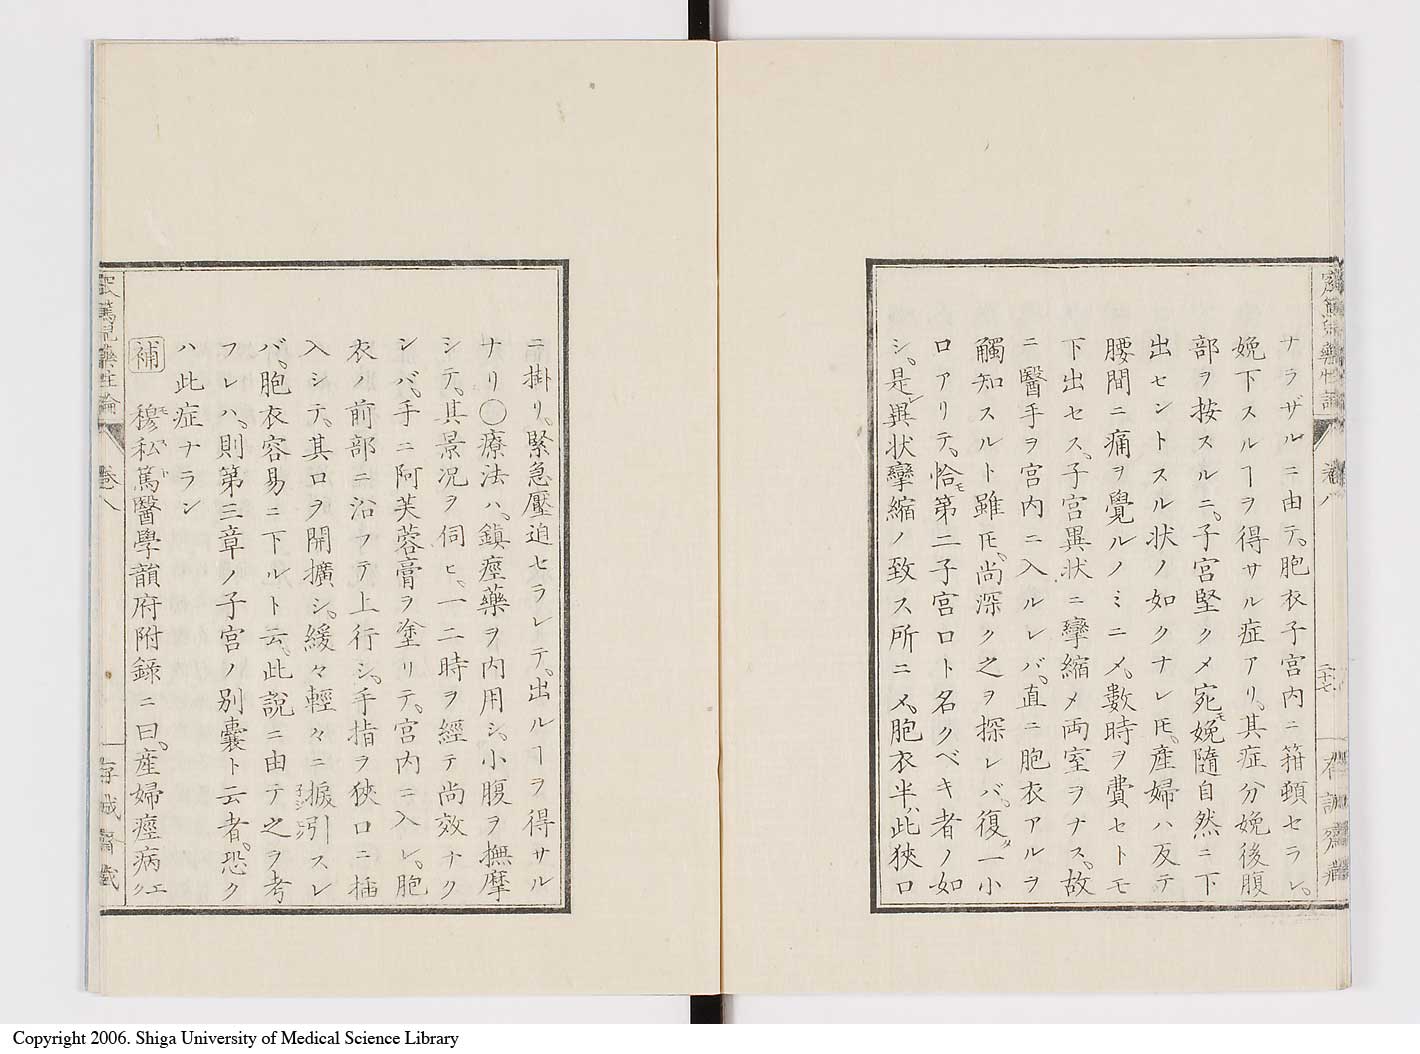 ナラザルニ由テ、胞衣子宮内ニ箝頓セラレ、
娩下スルヿヲ得サル症アリ、其症分娩後腹
部ヲ按スルニ、子宮堅クメ宛モ娩隨自然ニ下
出セントスル状ノ如クナレ𪜈、産婦ハ反テ
腰間ニ痛ヲ覺ルノミニメ、數時ヲ費セトモ
下出セス、子宮異状ニ攣縮メ両室ヲナス、故
ニ醫手ヲ宮内ニ入ルレバ、直ニ胞衣アルヲ
觸知スルト雖𪜈、尚深ク之ヲ探レバ、復タ一小
口アリテ、恰モ第二子宮口ト名クベキ者ノ如
シ、是レ異状攣縮ノ致ス所ニメ、胞衣半ハ此狹口
二十七
ニ掛リ、緊急壓迫セラレテ、出ルヿヲ得サル
ナリ〇療法ハ、鎮痙藥ヲ内用シ、小腹ヲ撫摩
シテ、其景況ヲ伺ヒ、一二時ヲ經テ尚效ナク
ンバ、手ニ阿芙蓉膏ヲ塗リテ、宮内ニ入レ、胞
衣ノ前部ニ沿フテ上行シ、手指ヲ狹口ニ插
入シテ、其口ヲ開擴シ、緩々輕々ニ捩引スレ
バ、胞衣容易ニ下ルト云、此説ニ由テ之ヲ考
フレハ、則第三章ノ子宮ノ別囊ト云者、恐ク
ハ此症ナラン
補 穆私篤醫學韻府附録ニ曰、産婦痙病
藥性論
卷八
Copyright 2006. Shiga University of Medical Science Library